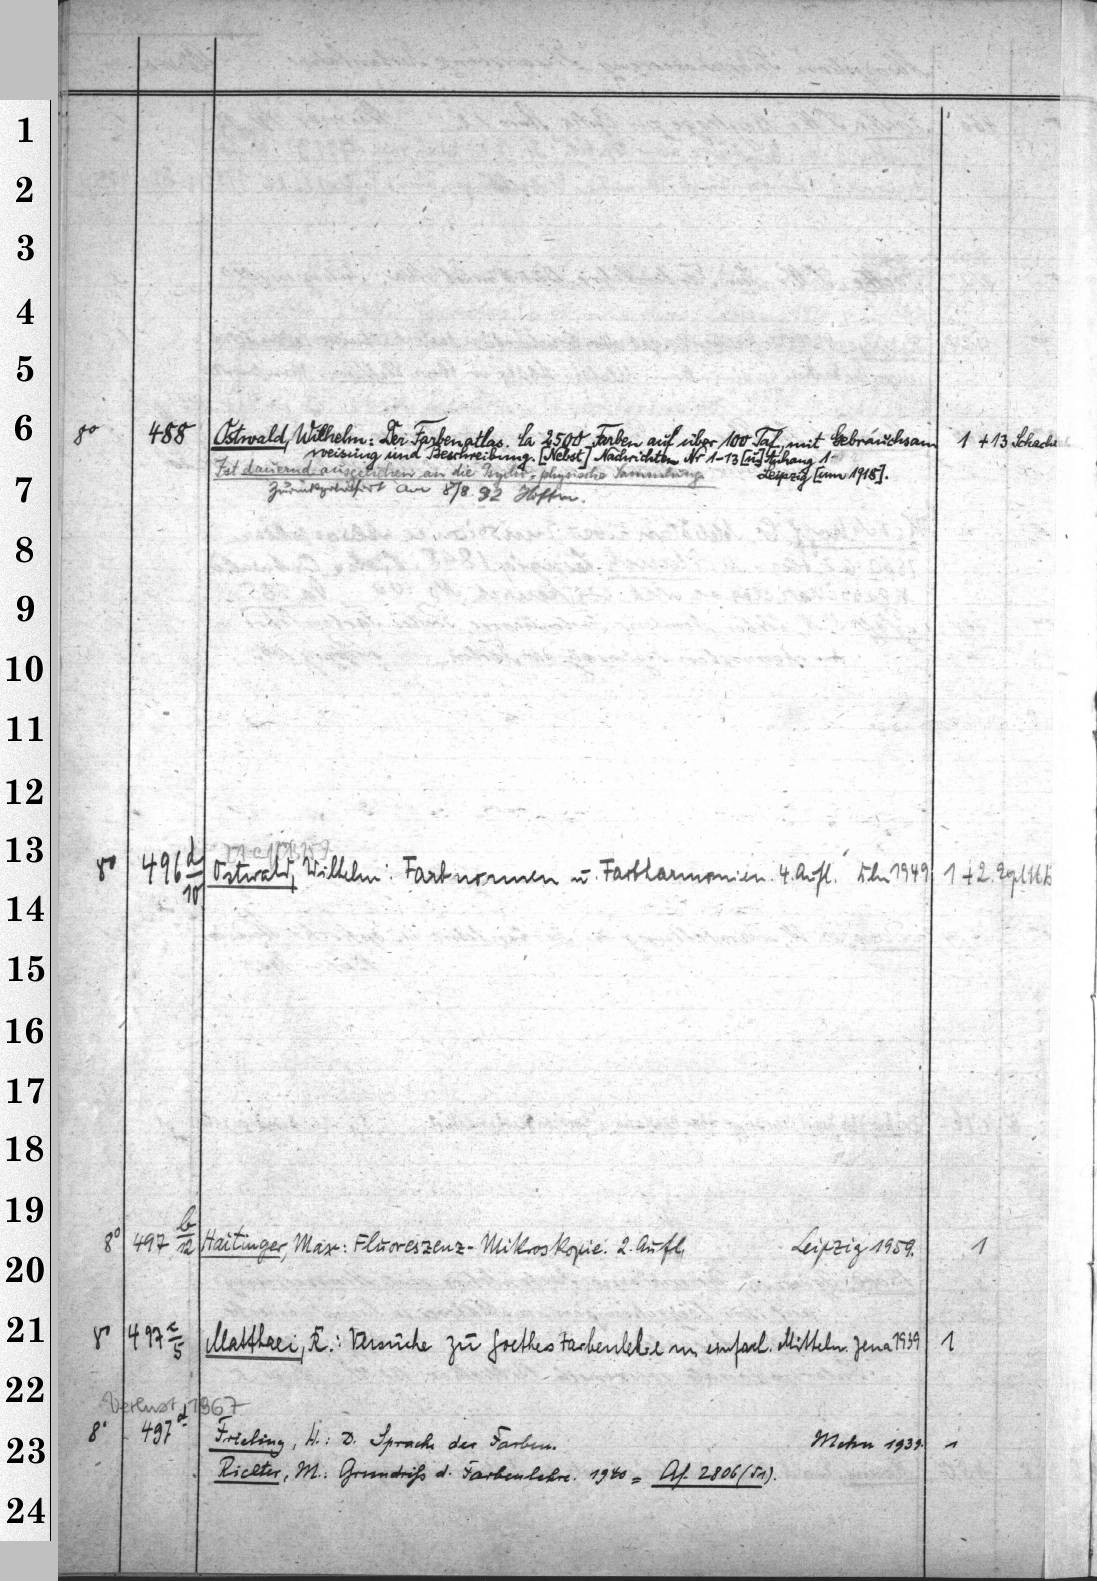 1
2
3
4
5
6
8° 488 Ostwald, Wilhelm: Der Farbenatlas. Ca 2500 Farben auf über 100 Taf. mit Gebrauchsan 1 + 13 Schachn
weisung und Beschreibung. [Nebst] Nachrichten Nr 1-13 [u.] Anhang 1-
Leipzig [um 1918].
Ist dauernd ausgeliehen an die Psycho-physische Sammlung
7
zurückgeliefert am 8/8. 32
8
9
10
11
12
13
8° 496 d/10 Ostwald, Wilhelm: Farbnormen u. Farbharmonien. 4. Aufl. 1949 1 + 2
14
15
16
17
18
19
8° 497 b/12 Haitinger, Max: Fluoreszenz-Mikroskopie. 2. Aufl. Leipzig 1959. 1
20
21
8° 497 c/5 Matthaei, R.: Versuche zu Goethes Farbenlehre m. einfach. Mitteln. Jena 1939 1
22
Verlust 1967
8° 497 d Frieling, H.: D. Sprache der Farben. Mchn 1939. 1
23
Richter, M.: Grundriß d. Farbenlehre. 1940 = Af. 2806 (51).
24